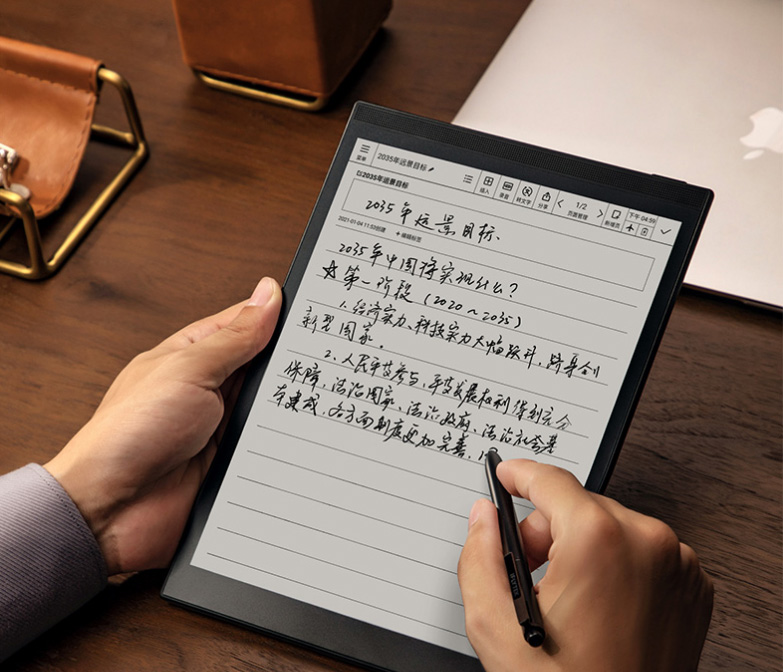 2035年远景目标
插入
录音
转文字
分享
1/2
页面管理
新增页
下午 04:59
2035年远景目标
2035年远景目标、
2021-01-04 11:53创建 +编辑标签
2035年中国将实现什么?
☆第一阶段(2020~2035)
1.经济实力、科技实力大幅跃升,跻身创
新型国家。
2、人民平等参与、平等发展权利得到充分
保障,法治国家、法治政府、法治社会基
本建成,各方面制度更加完善,